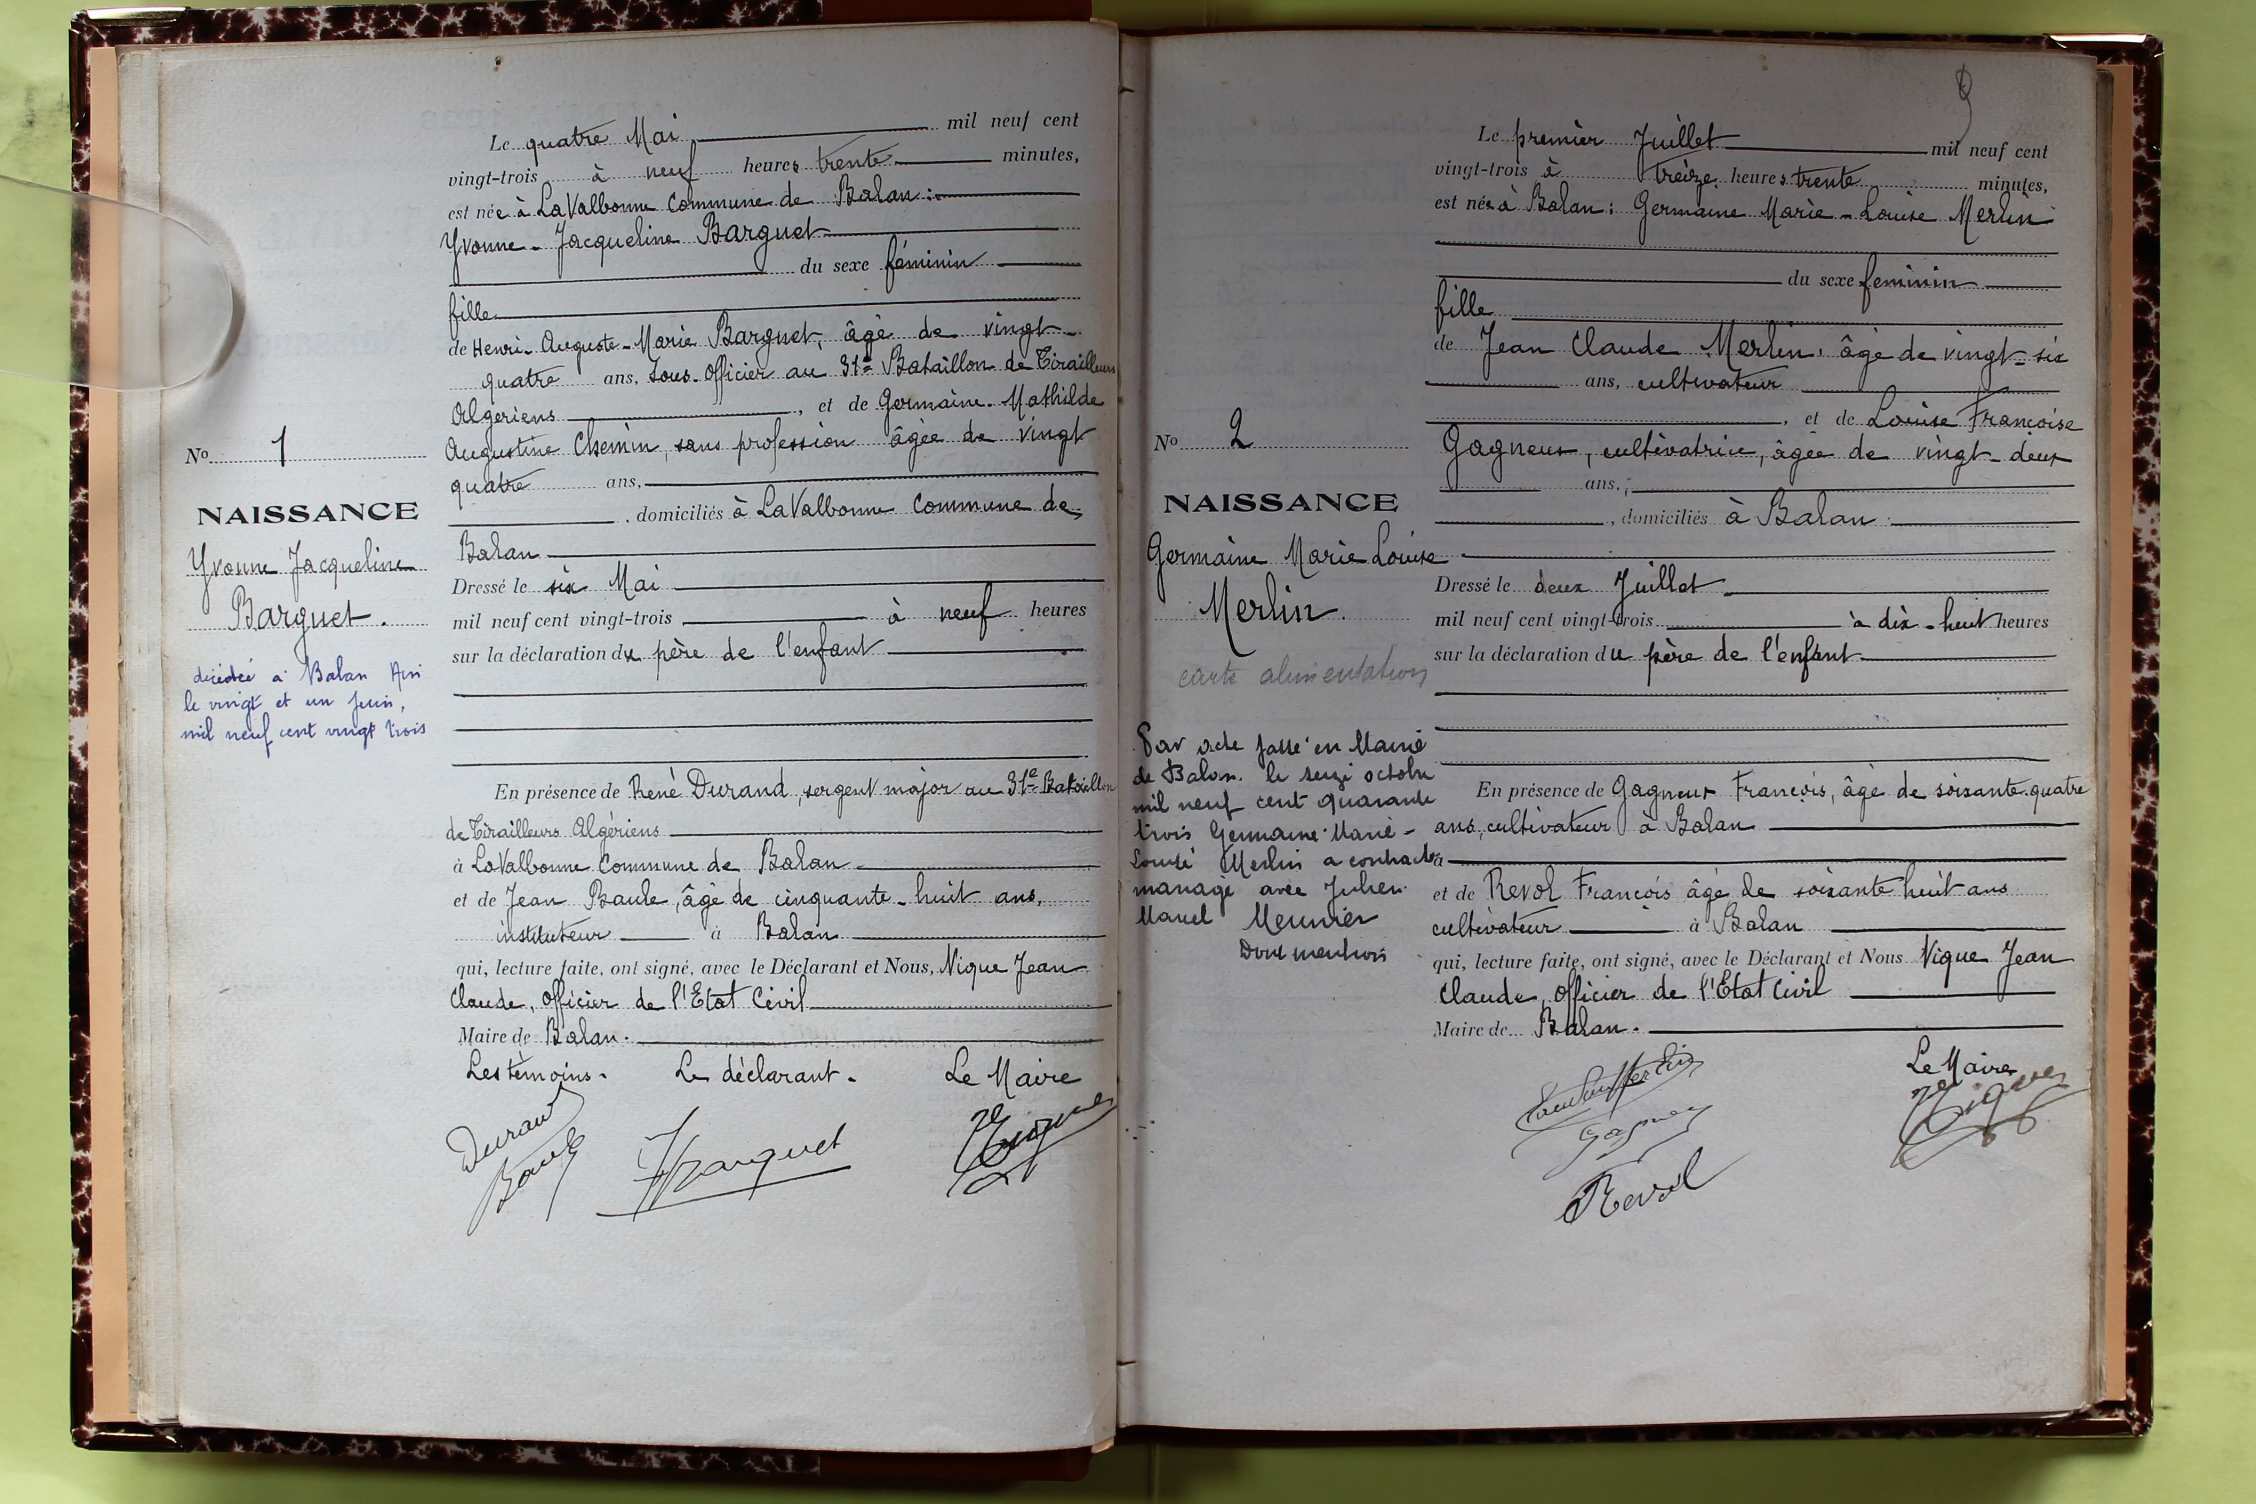 Le quatre Mai mil neuf cent
vingt-trois à neuf heures trente minutes,
est née à La Valbonne Commune de Balan :
Yvonne - Jacqueline Barguet
du sexe féminin
fille
de Henri - Auguste - Marie Barguet, âgé de vingt-
quatre ans, sous-officier au 31e Bataillon de Tirailleurs
Algériens, et de Germaine - Mathilde
Augustine Chemin, sans profession âgée de vingt
quatre ans,
, domiciliés à La Valbonne Commune de
Balan
Dressé le six Mai
mil neuf cent vingt-trois à neuf heures
sur la déclaration du père de l'enfant
En présence de René Durand, sergent major au 31e Bataillon
de Tirailleurs Algériens
à La Valbonne Commune de Balan
et de Jean Baule, âgé de cinquante-huit ans,
instituteur à Balan
qui, lecture faite, ont signé, avec le Déclarant et Nous, Vique Jean
Claude, Officier de l'Etat Civil
Maire de Balan.
Les témoins. Le déclarant. Le Maire
Durand
Baule
Barguet
N° 1
NAISSANCE
Yvonne Jacqueline
Barguet.
décédée à Balan Ain
le vingt et un juin,
mil neuf cent vingt trois
9
Le premier Juillet mil neuf cent
vingt-trois à treize heures trente minutes,
est née à Balan : Germaine Marie - Louise Merlin
du sexe feminin
fille
de Jean Claude Merlin, âgé de vingt-six
ans, cultivateur
, et de Louise Françoise
Gagneux, cultivatrice, âgée de vingt-deux
ans,
, domiciliés à Balan.
Dressé le deux Juillet
mil neuf cent vingt-trois à dix-huit heures
sur la déclaration du père de l'enfant
En présence de Gagneux François, âgé de soixante-quatre
ans, cultivateur à Balan
à
et de Revol François âgé de soixante huit ans
cultivateur à Balan
qui, lecture faite, ont signé, avec le Déclarant et Nous Vique Jean
Claude, Officier de l'Etat Civil
Maire de Balan.
Le Maire
Merlin
Gagneux
Revol
N° 2
NAISSANCE
Germaine Marie Louise
Merlin.
carte alimentation
Par acte passé en Mairie
de Balan. le seize octobre
mil neuf cent quarante
trois Germaine-Marie-
Louise Merlin a contracté
mariage avec Julien
Marcel Meunier
Dont mention